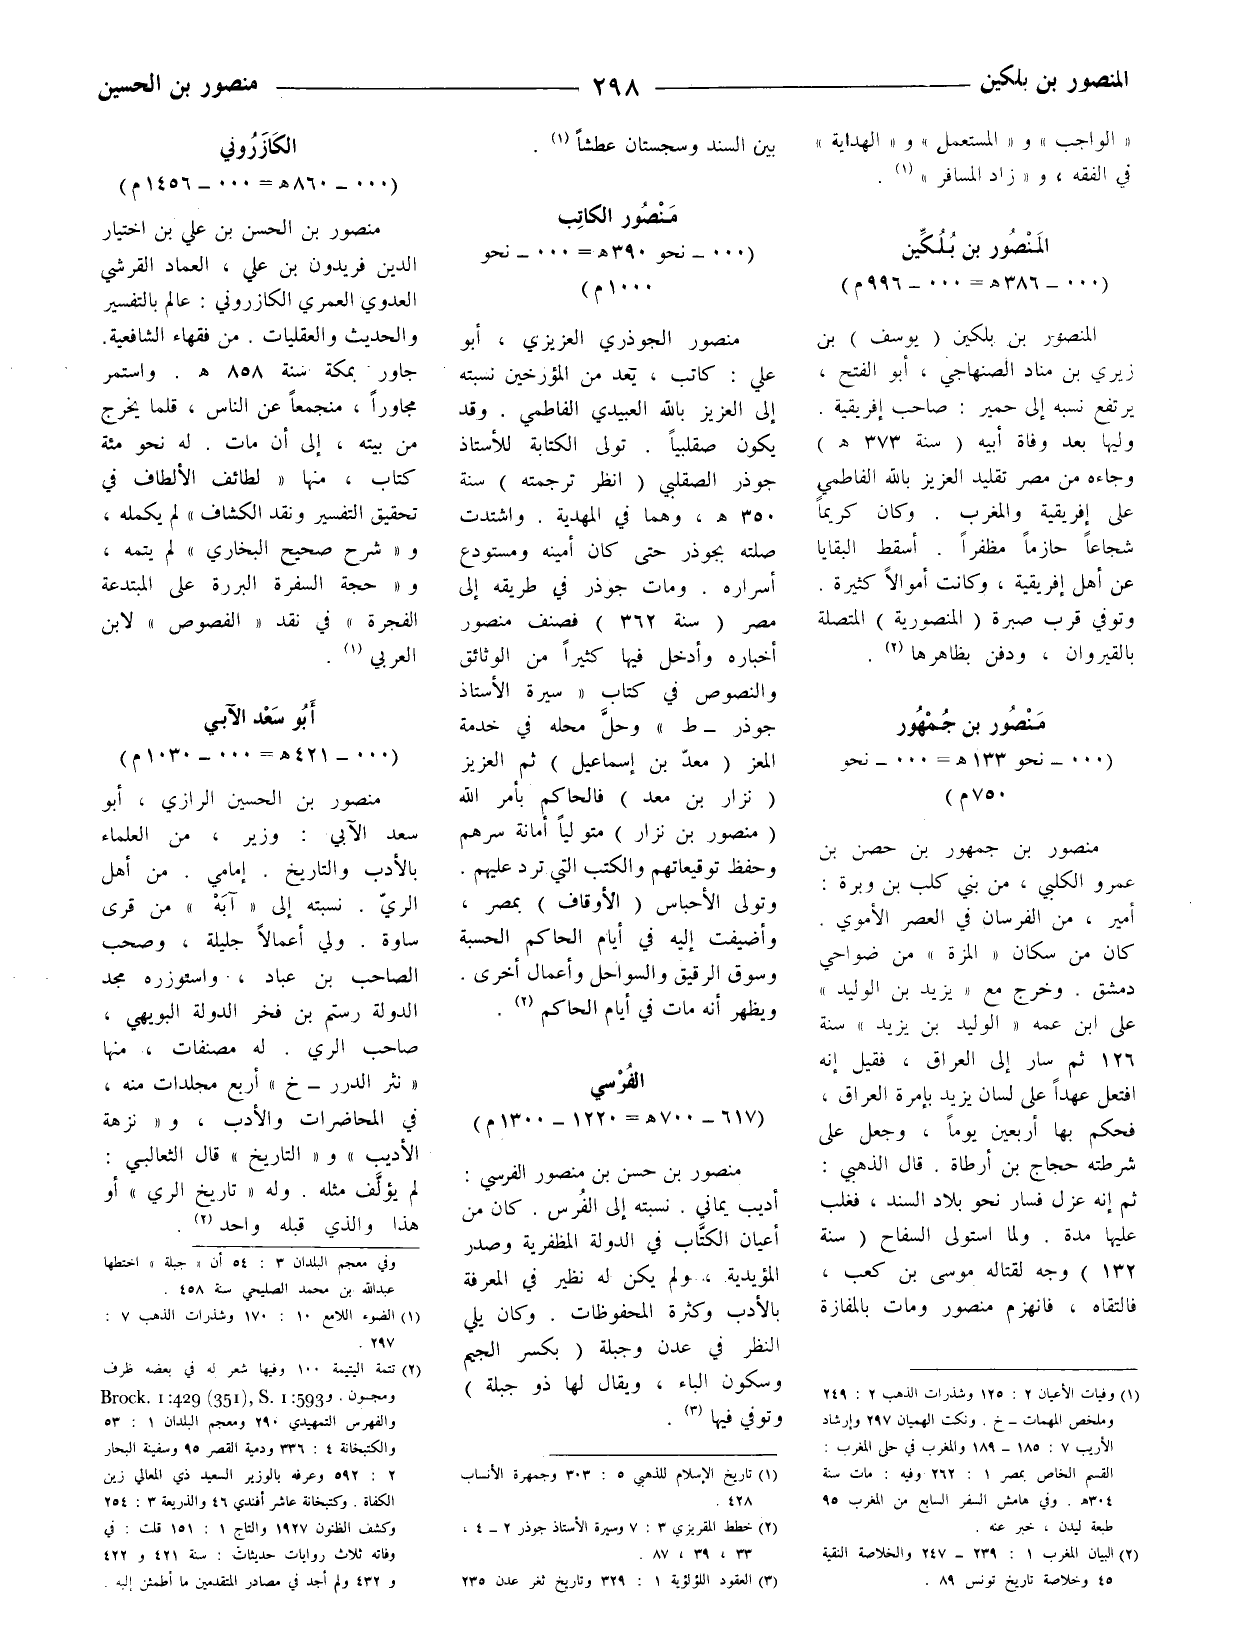 المنصور بن بلكين
٢٩٨
منصور بن الحسين
« الواجب » و « المستعمل » و « الهداية »
في الفقه ، و « زاد المسافر » (١) .
المَنْصُور بن بُلُكِّين
(٠٠٠ ـ ٣٨٦ ھ = ٠٠٠ ـ ٩٩٦ م)
المنصور بن بلكين ( يوسف ) بن
زيري بن مناد الصنهاجي ، أبو الفتح ،
يرتفع نسبه إلى حمير : صاحب إفريقية .
وليها بعد وفاة أبيه ( سنة ٣٧٣ ھ )
وجاءه من مصر تقليد العزيز بالله الفاطمي
على إفريقية والمغرب . وكان كريماً
شجاعاً حازماً مظفراً . أسقط البقايا
عن أهل إفريقية ، وكانت أموالاً كثيرة .
وتوفي قرب صبرة ( المنصورية ) المتصلة
بالقيروان ، ودفن بظاهرها (٢) .
مَنْصُور بن جُمْهُور
(٠٠٠ ـ نحو ١٣٣ ھ = ٠٠٠ ـ نحو
٧٥٠ م)
منصور بن جمهور بن حصن بن
عمرو الكلبي ، من بني كلب بن وبرة :
أمير ، من الفرسان في العصر الأموي .
كان من سكان « المزة » من ضواحي
دمشق . وخرج مع « يزيد بن الوليد »
على ابن عمه « الوليد بن يزيد » سنة
١٢٦ ثم سار إلى العراق ، فقيل إنه
افتعل عهداً على لسان يزيد بإمرة العراق ،
فحكم بها أربعين يوماً ، وجعل على
شرطته حجاج بن أرطاة . قال الذهبي :
ثم إنه عزل فسار نحو بلاد السند ، فغلب
عليها مدة . ولما استولى السفاح ( سنة
١٣٢ ) وجه لقتاله موسى بن كعب ،
فالتقاه ، فانهزم منصور ومات بالمفازة
(١) وفيات الأعيان ٢ : ١٢٥ وشذرات الذهب ٢ : ٢٤٩
وملخص المهمات ـ خ . ونكت الهميان ٢٩٧ وإرشاد
الأريب ٧ : ١٨٥ ـ ١٨٩ والمغرب في حلى المغرب :
القسم الخاص بمصر ١ : ٢٦٢ وفيه : مات سنة
٣٠٤ھ . وفي هامش السفر السابع من المغرب ٩٥
طبعة ليدن ، خبر عنه .
(٢) البيان المغرب ١ : ٢٣٩ ـ ٢٤٧ والخلاصة النقية
٤٥ وخلاصة تاريخ تونس ٨٩ .
بين السند وسجستان عطشاً (١) .
مَنْصُور الكاتِب
(٠٠٠ ـ نحو ٣٩٠ ھ = ٠٠٠ ـ نحو
١٠٠٠ م)
منصور الجوذري العزيزي ، أبو
علي : كاتب ، يَعد من المؤرخين نسبته
إلى العزيز بالله العبيدي الفاطمي . وقد
يكون صقلبياً . تولى الكتابة للأستاذ
جوذر الصقلبي ( انظر ترجمته ) سنة
٣٥٠ ھ ، وهما في المهدية . واشتدت
صلته بجوذر حتى كان أمينه ومستودع
أسراره . ومات جوذر في طريقه إلى
مصر ( سنة ٣٦٢ ) فصنف منصور
أخباره وأدخل فيها كثيراً من الوثائق
والنصوص في كتاب « سيرة الأستاذ
جوذر ـ ط » وحلَّ محله في خدمة
المعز ( معدّ بن إسماعيل ) ثم العزيز
( نزار بن معد ) فالحاكم بأمر الله
( منصور بن نزار ) متولياً أمانة سرهم
وحفظ توقيعاتهم والكتب التي ترد عليهم .
وتولى الأحباس ( الأوقاف ) بمصر ،
وأضيفت إليه في أيام الحاكم الحسبة
وسوق الرقيق والسواحل وأعمال أخرى .
ويظهر أنه مات في أيام الحاكم (٢) .
الفُرْسي
(٦١٧ ـ ٧٠٠ ھ = ١٢٢٠ ـ ١٣٠٠ م)
منصور بن حسن بن منصور الفرسي :
أديب يماني . نسبته إلى الفُرس . كان من
أعيان الكتَّاب في الدولة المظفرية وصدر
المؤيدية ، ولم يكن له نظير في المعرفة
بالأدب وكثرة المحفوظات . وكان يلي
النظر في عدن وجبلة ( بكسر الجيم
وسكون الباء ، ويقال لها ذو جبلة )
وتوفي فيها (٣) .
(١) تاريخ الإسلام للذهبي ٥ : ٣٠٣ وجمهرة الأنساب
٤٢٨ .
(٢) خطط المقريزي ٣ : ٧ وسيرة الأستاذ جوذر ٢ ـ ٤ ،
٣٣ ، ٣٩ ، ٨٧ .
(٣) العقود اللؤلؤية ١ : ٣٢٩ وتاريخ ثغر عدن ٢٣٥
الكَازَرُوني
(٠٠٠ ـ ٨٦٠ ھ = ٠٠٠ ـ ١٤٥٦ م)
منصور بن الحسن بن علي بن اختيار
الدين فريدون بن علي ، العماد القرشي
العدوي العمري الكازروني : عالم بالتفسير
والحديث والعقليات . من فقهاء الشافعية.
جاور بمكة سنة ٨٥٨ ھ . واستمر
مجاوراً ، منجمعاً عن الناس ، قلما يخرج
من بيته ، إلى أن مات . له نحو مئة
كتاب ، منها « لطائف الألطاف في
تحقيق التفسير ونقد الكشاف » لم يكمله ،
و « شرح صحيح البخاري » لم يتمه ،
و « حجة السفرة البررة على المبتدعة
الفجرة » في نقد « الفصوص » لابن
العربي (١) .
أَبُو سَعْد الآبي
(٠٠٠ ـ ٤٢١ ھ = ٠٠٠ ـ ١٠٣٠ م)
منصور بن الحسين الرازي ، أبو
سعد الآبي : وزير ، من العلماء
بالأدب والتاريخ . إمامي . من أهل
الريّ . نسبته إلى « آبَة » من قرى
ساوة . ولي أعمالاً جليلة ، وصحب
الصاحب بن عباد ، واستوزره مجد
الدولة رستم بن فخر الدولة البويهي ،
صاحب الري . له مصنفات ، منها
« نثر الدرر ـ خ » أربع مجلدات منه ،
في المحاضرات والأدب ، و « نزهة
الأديب » و « التاريخ » قال الثعالبي :
لم يؤلَّف مثله . وله « تاريخ الري » أو
هذا والذي قبله واحد (٢) .
وفي معجم البلدان ٣ : ٥٤ أن « جبلة » اختطها
عبدالله بن محمد الصليحي سنة ٤٥٨ .
(١) الضوء اللامع ١٠ : ١٧٠ وشذرات الذهب ٧ :
٢٩٧ .
(٢) تتمة اليتيمة ١٠٠ وفيها شعر له في بعضه ظرف
ومجون . و Brock. 1:429 (351), S. 1:593
والفهرس التمهيدي ٢٩٠ ومعجم البلدان ١ : ٥٣
والكتبخانة ٤ : ٣٣٦ ودمية القصر ٩٥ وسفينة البحار
٢ : ٥٩٢ وعرفه بالوزير السعيد ذي المعالي زين
الكفاة . وكتبخانة عاشر أفندي ٤٦ والذريعة ٣ : ٢٥٤
وكشف الظنون ١٩٢٧ والتاج ١ : ١٥١ قلت : في
وفاته ثلاث روايات حديثات : سنة ٤٢١ و ٤٢٢
و ٤٣٢ ولم أجد في مصادر المتقدمين ما أطمئن إليه .